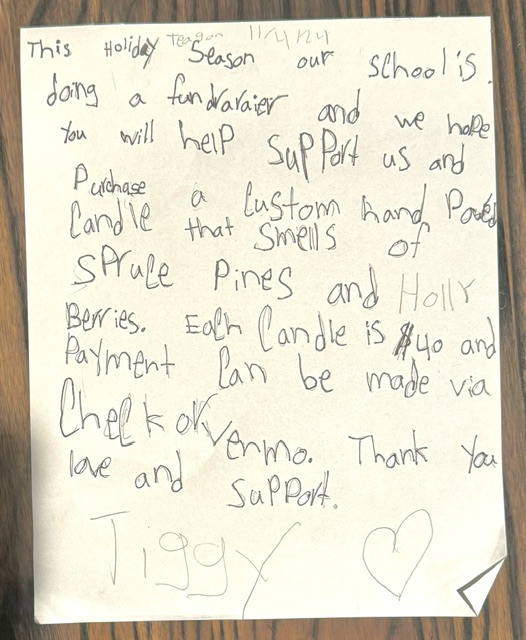 Teagan 11/4/24
This Holiday Season our school is.
doing a fundraraier and we hope
You will help support us and
Purchase a Custom hand Poured
Candle that smells of
spruce Pines and Holly
Berries. Each Candle is $40 and
Payment Can be made via
Check or Venmo. Thank You
love and support.
Tiggy